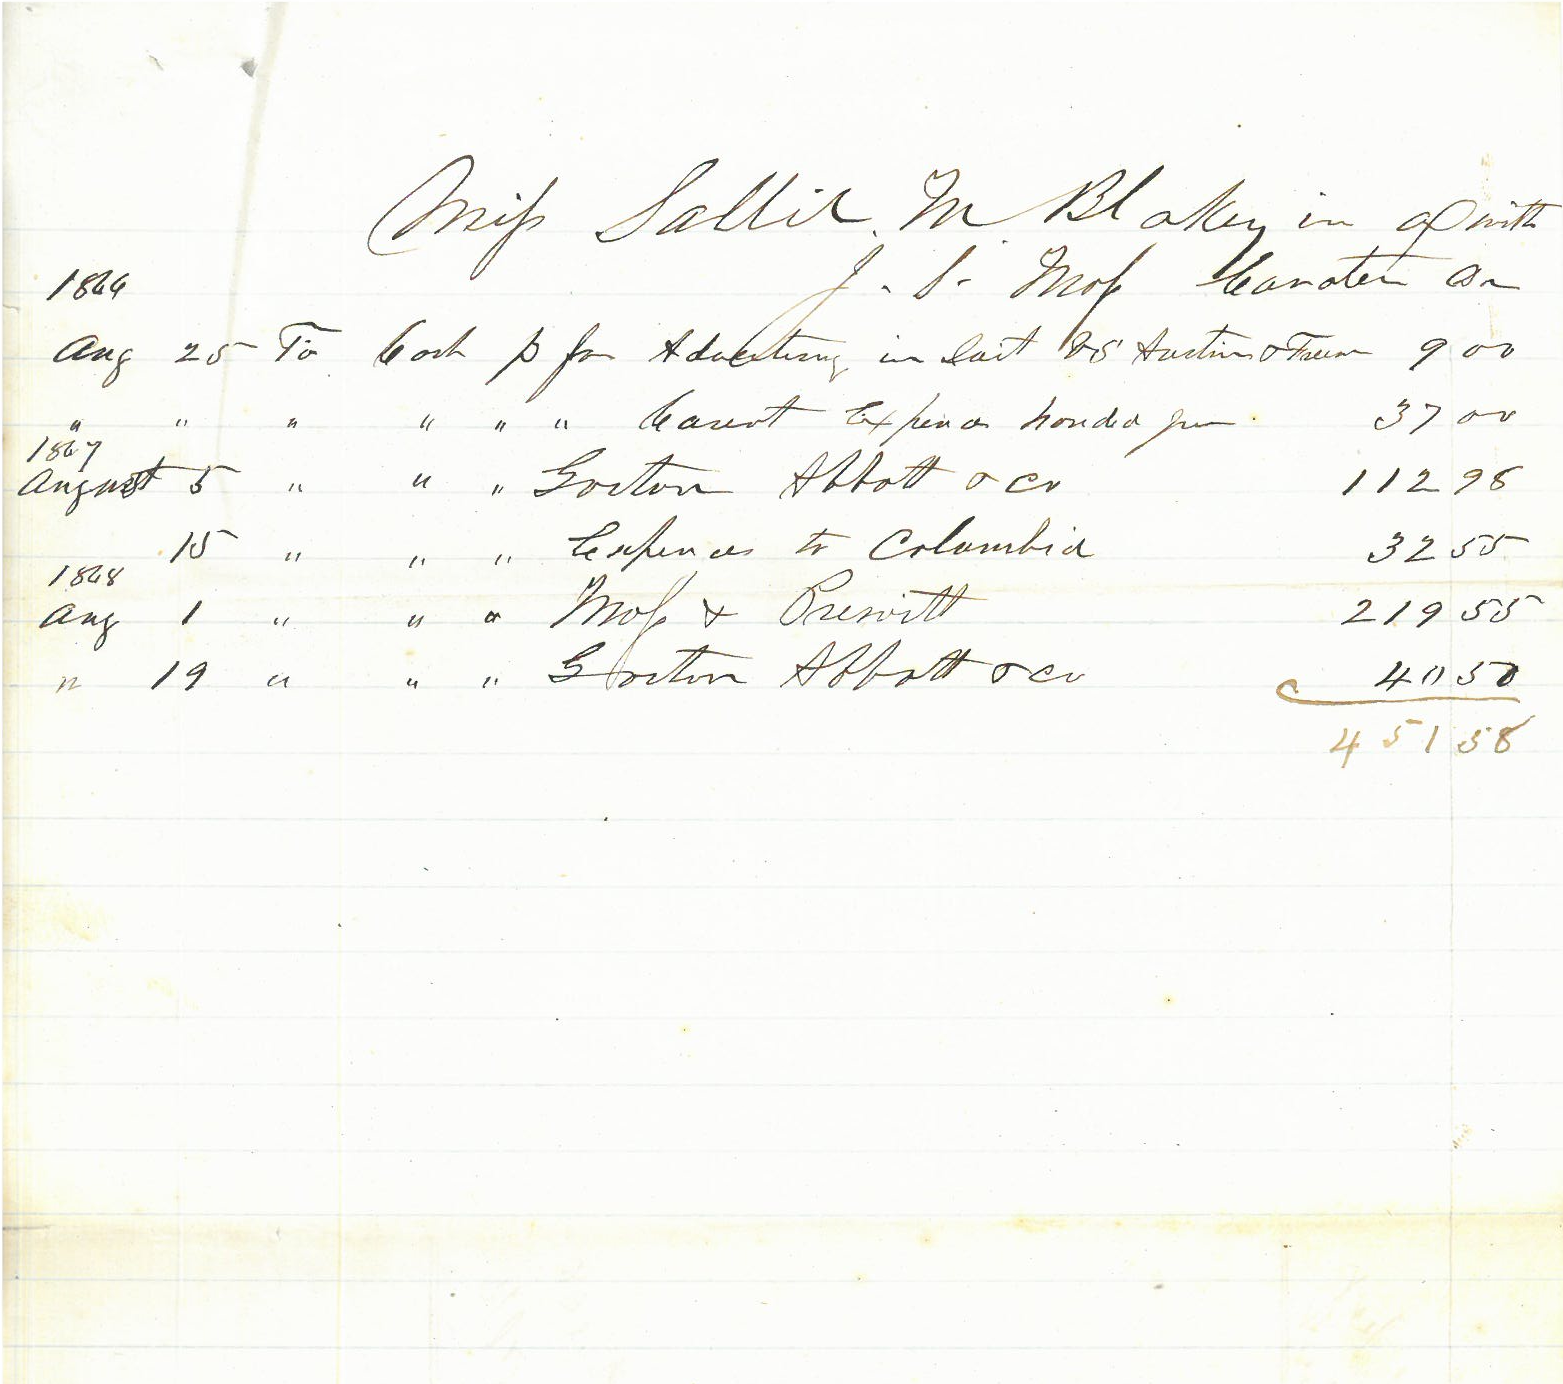 Miss Sallie M Blakey in a/c with
J. S. Moss Curator Dr
1866
Aug 25 To Cash p for Advertising in Suit vs Austin & Freem 9 00
" " " " " " Current Expenses handed your 37 00
1867
August 5 " " " Gorton Abbott & Co 112 98
15 " " " Expenses to Columbia 32 55
1868
Aug 1 " " " Moss & Prewitt 219 55
" 19 " " " Gorton Abbott & Co 40 50
451 58